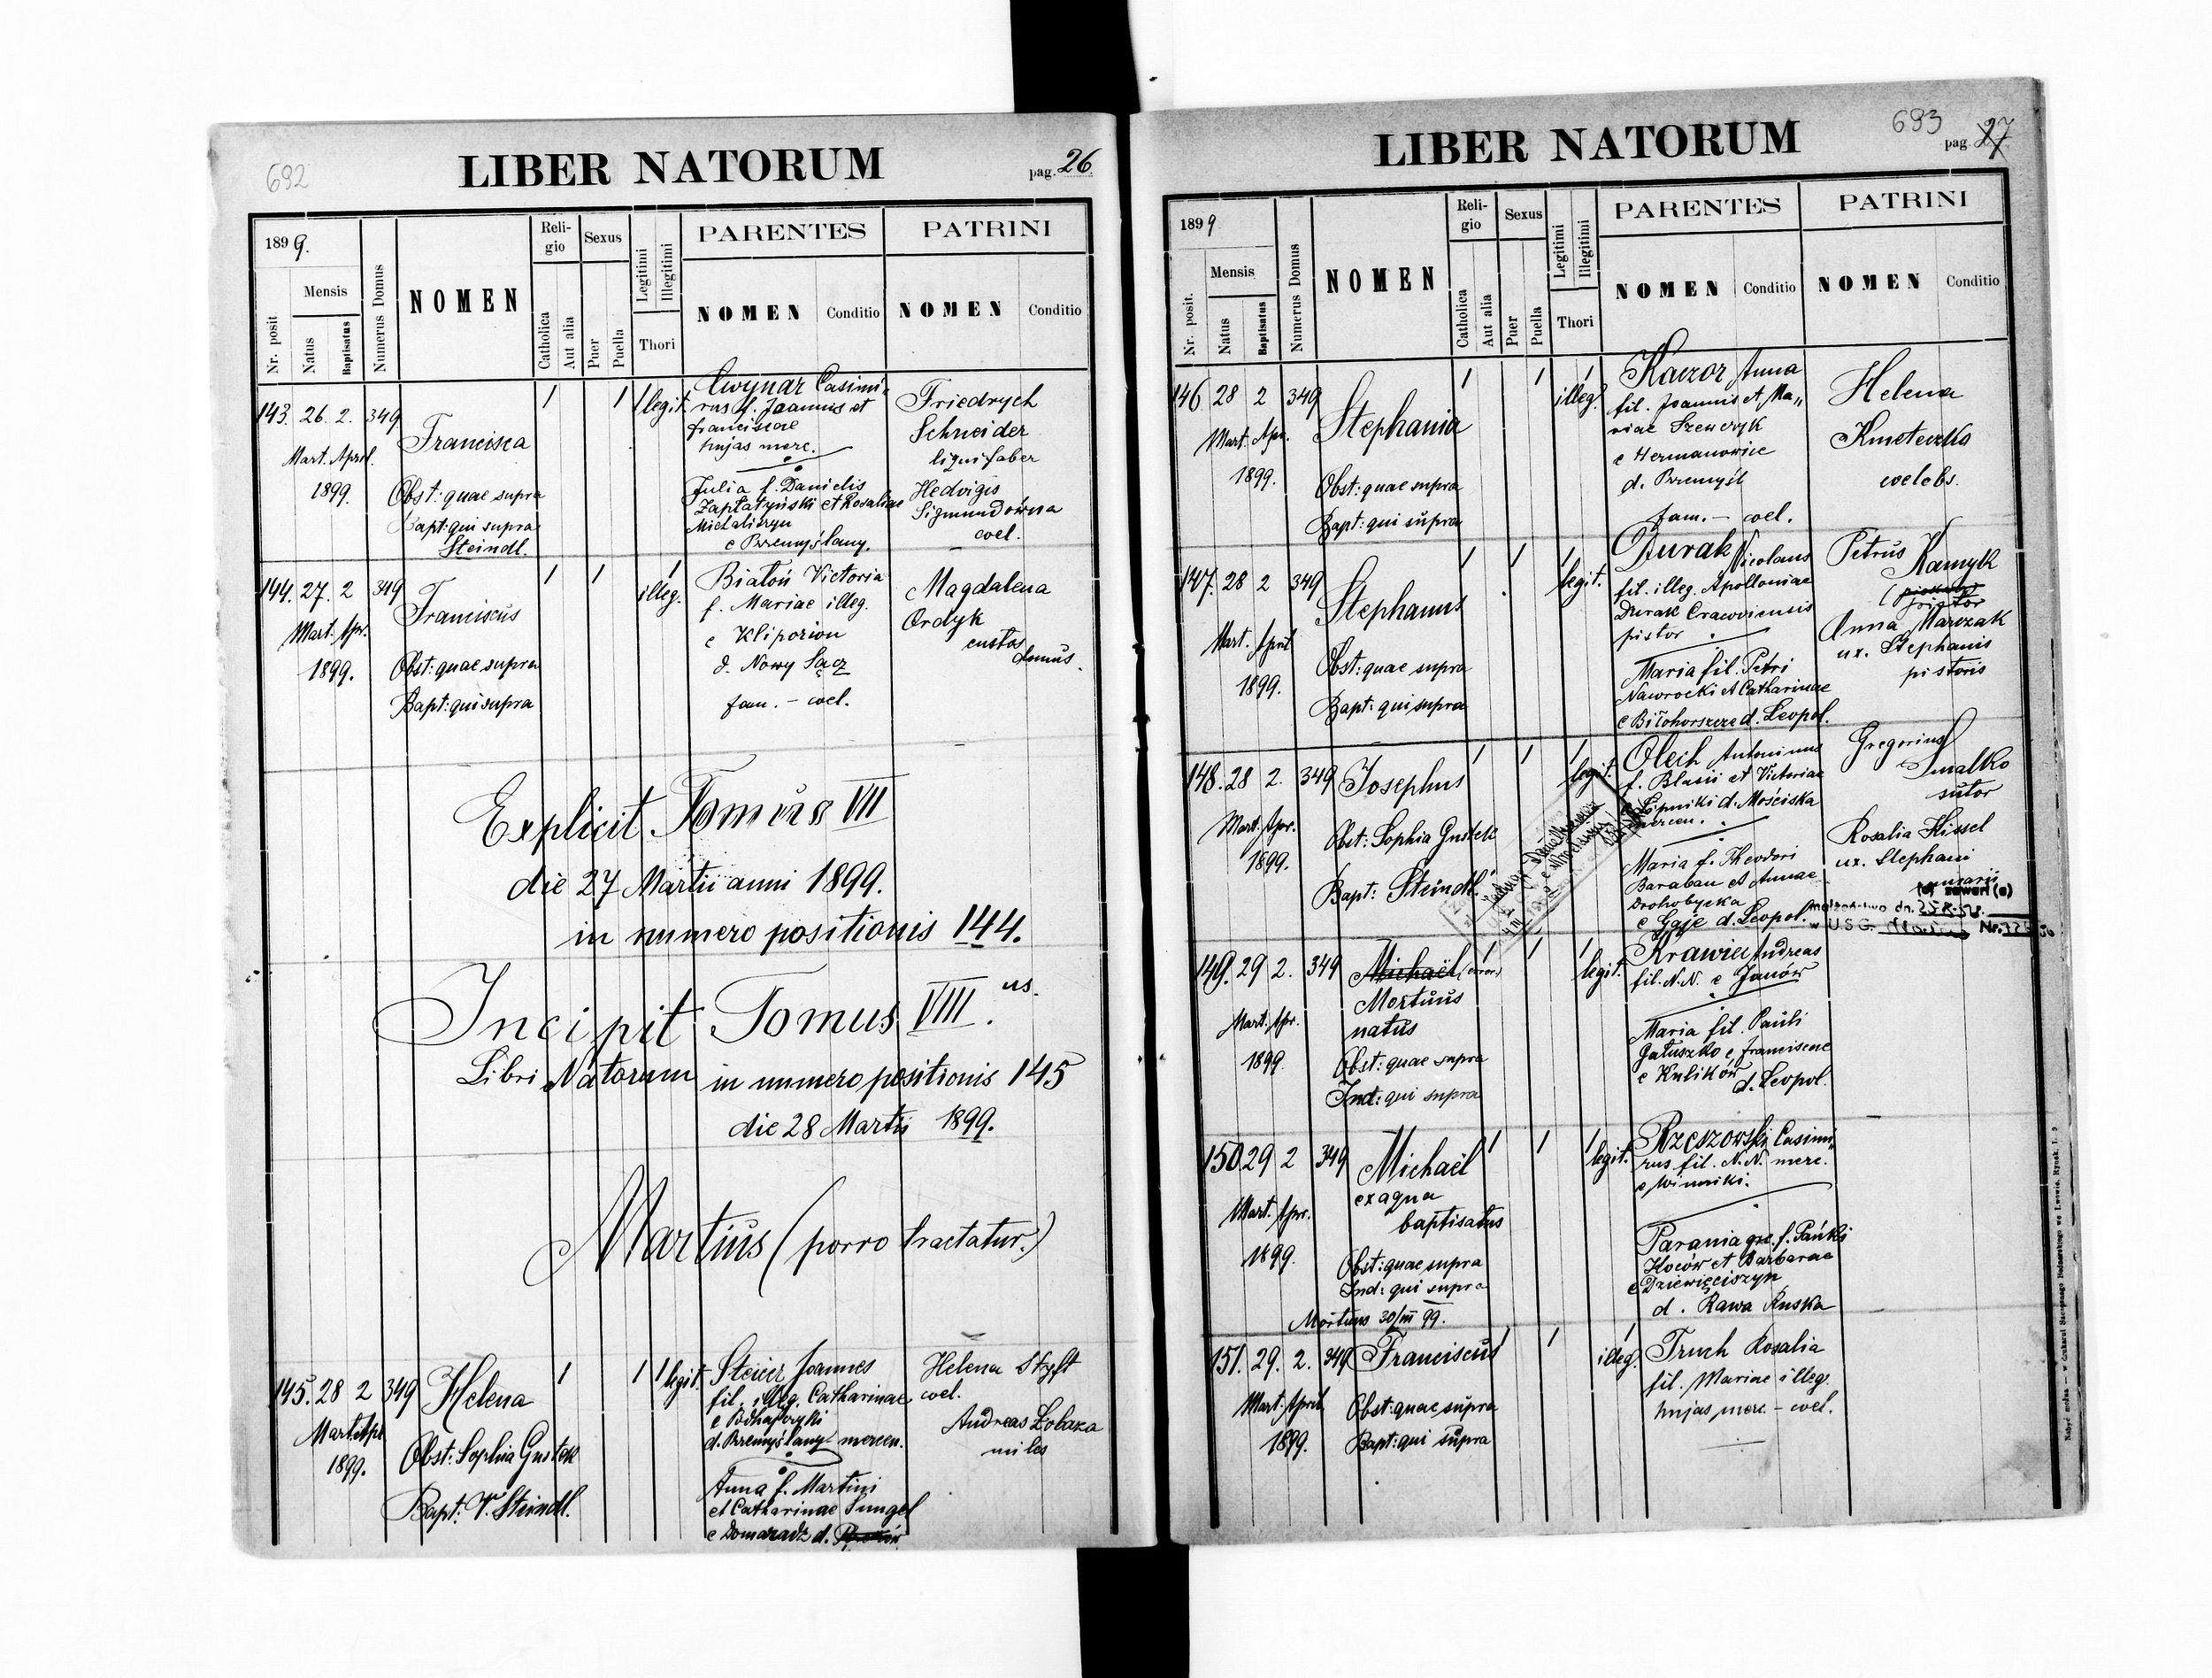 692
LIBER NATORUM
pag. 26
1899.
Nr. posit
Mensis
Natus
Baptisatus
Numerus Domus
NOMEN
Reli-
gio
Catholica
Aut alia
Sexus
Puer
Puella
Legitimi
Illegitimi
Thori
PARENTES
NOMEN
Conditio
PATRINI
NOMEN
Conditio
143. 26. 2. 349
Mart. April.
1899.
Francisca
Obst: quae supra
Bapt: qui supra
Steindl.
1 1 1 legit.
Cwynar Casimi-
rus f. Joannis et
Franciscae
hujas merc.
Julia f. Danielis
Zapłatyński et Rosaliae
Michaliszyn
e Przemyślany.
Friedrych
Schneider
lignifaber
Hedvigis
Sigmundówna
coel.
144. 27. 2 349
Mart. Apr.
1899.
Franciscus
Obst: quae supra
Bapt: qui supra
1 1 1
illeg.
Białoń Victoria
f. Mariae illeg.
e
d. Nowy Sącz
fam. - coel.
Magdalena
Ordyk
custos
domus.
Explicit Tomus VII
die 27 Martii anni 1899.
in numero positionis 144.
Incipit Tomus VIII us.
Libri Natorum in numero positionis 145
die 28 Martii 1899.
Martius (porro tractatur.)
145. 28 2 349
Mart. Apr.
1899.
Helena
Obst: Sophia Gustek
Bapt: V. Steindl.
1 1 1 legit.
Steier Joannes
fil. illeg. Catharinae
e
d. Przemyślany mercen.
Anna f. Martini
et Catharinae Sungel
e Domaradz d.
Helena Styft
coel.
Andreas Łobaza
miles
693
LIBER NATORUM
pag. 27
1899
Nr. posit.
Mensis
Natus
Baptisatus
Numerus Domus
NOMEN
Reli-
gio
Catholica
Aut alia
Sexus
Puer
Puella
Legitimi
Illegitimi
Thori
PARENTES
NOMEN
Conditio
PATRINI
NOMEN
Conditio
146 28 2 349
Mart. Apr.
1899.
Stephania
Obst: quae supra
Bapt: qui supra
1 1 1
illeg.
Kaczor Anna
fil. Joannis et Ma-
riae Szewczyk
e Hermanowice
d. Przemyśl
fam. - coel.
Helena
Kmeteczko
coelebs.
147. 28 2 349
Mart. April
1899.
Stephanus
Obst: quae supra
Bapt: qui supra
1 1 1
legit.
Durak Nicolaus
fil. illeg. Apolloniae
Durak Cracoviensis
pistor
Maria fil. Petri
Nawrocki et Catharinae
e Biłohorszcze d. Leopol.
Petrus
Kamyk
pistor
Anna Marczak
ux. Stephanis
pistoris
148. 28 2. 349
Mart. Apr.
1899.
Josephus
Obst: Sophia Gustek
Bapt: Steindl.
1 1 1
legit.
Olech Antoninus
f. Blasii et Victoriae
e Lipniki d. Mościska
mercen.
Maria f. Theodori
Baraban et Annae
Drohobycka
e Gaje d. Leopol.
Gregorius
Smalko
sutor
Rosalia Kissel
ux. Stephani
zawarł (a)
małżeństwo dn.
w U.S.C. Nr.
149. 29 2. 349
Mart. Apr.
1899.
Michaël (error)
Mortuus
natus
Obst: quae supra
Ind: qui supra
1 1 1
legit.
Krawiec Andreas
fil. N.N. e Janów
Maria fil. Pauli
Gałuszko e Franciscae
e Kulików
d. Leopol.
150 29 2 349
Mart. Apr.
1899.
Michaël
ex aqua
baptisatus
Obst: quae supra
Ind: qui supra
Mortuus 30/III 99.
1 1 1
legit.
Rzeszowski Casimi-
rus fil. N.N. merc.
e Winniki.
Parania grc. f. Pańki
Kociów et Barbarae
e Dziewięciszyn
d. Rawa Ruska
151. 29. 2. 349
Mart. April
1899.
Franciscus
Obst: quae supra
Bapt: qui supra
1 1 1
illeg.
Truch Rosalia
fil. Mariae illeg.
hujas merc. - coel.